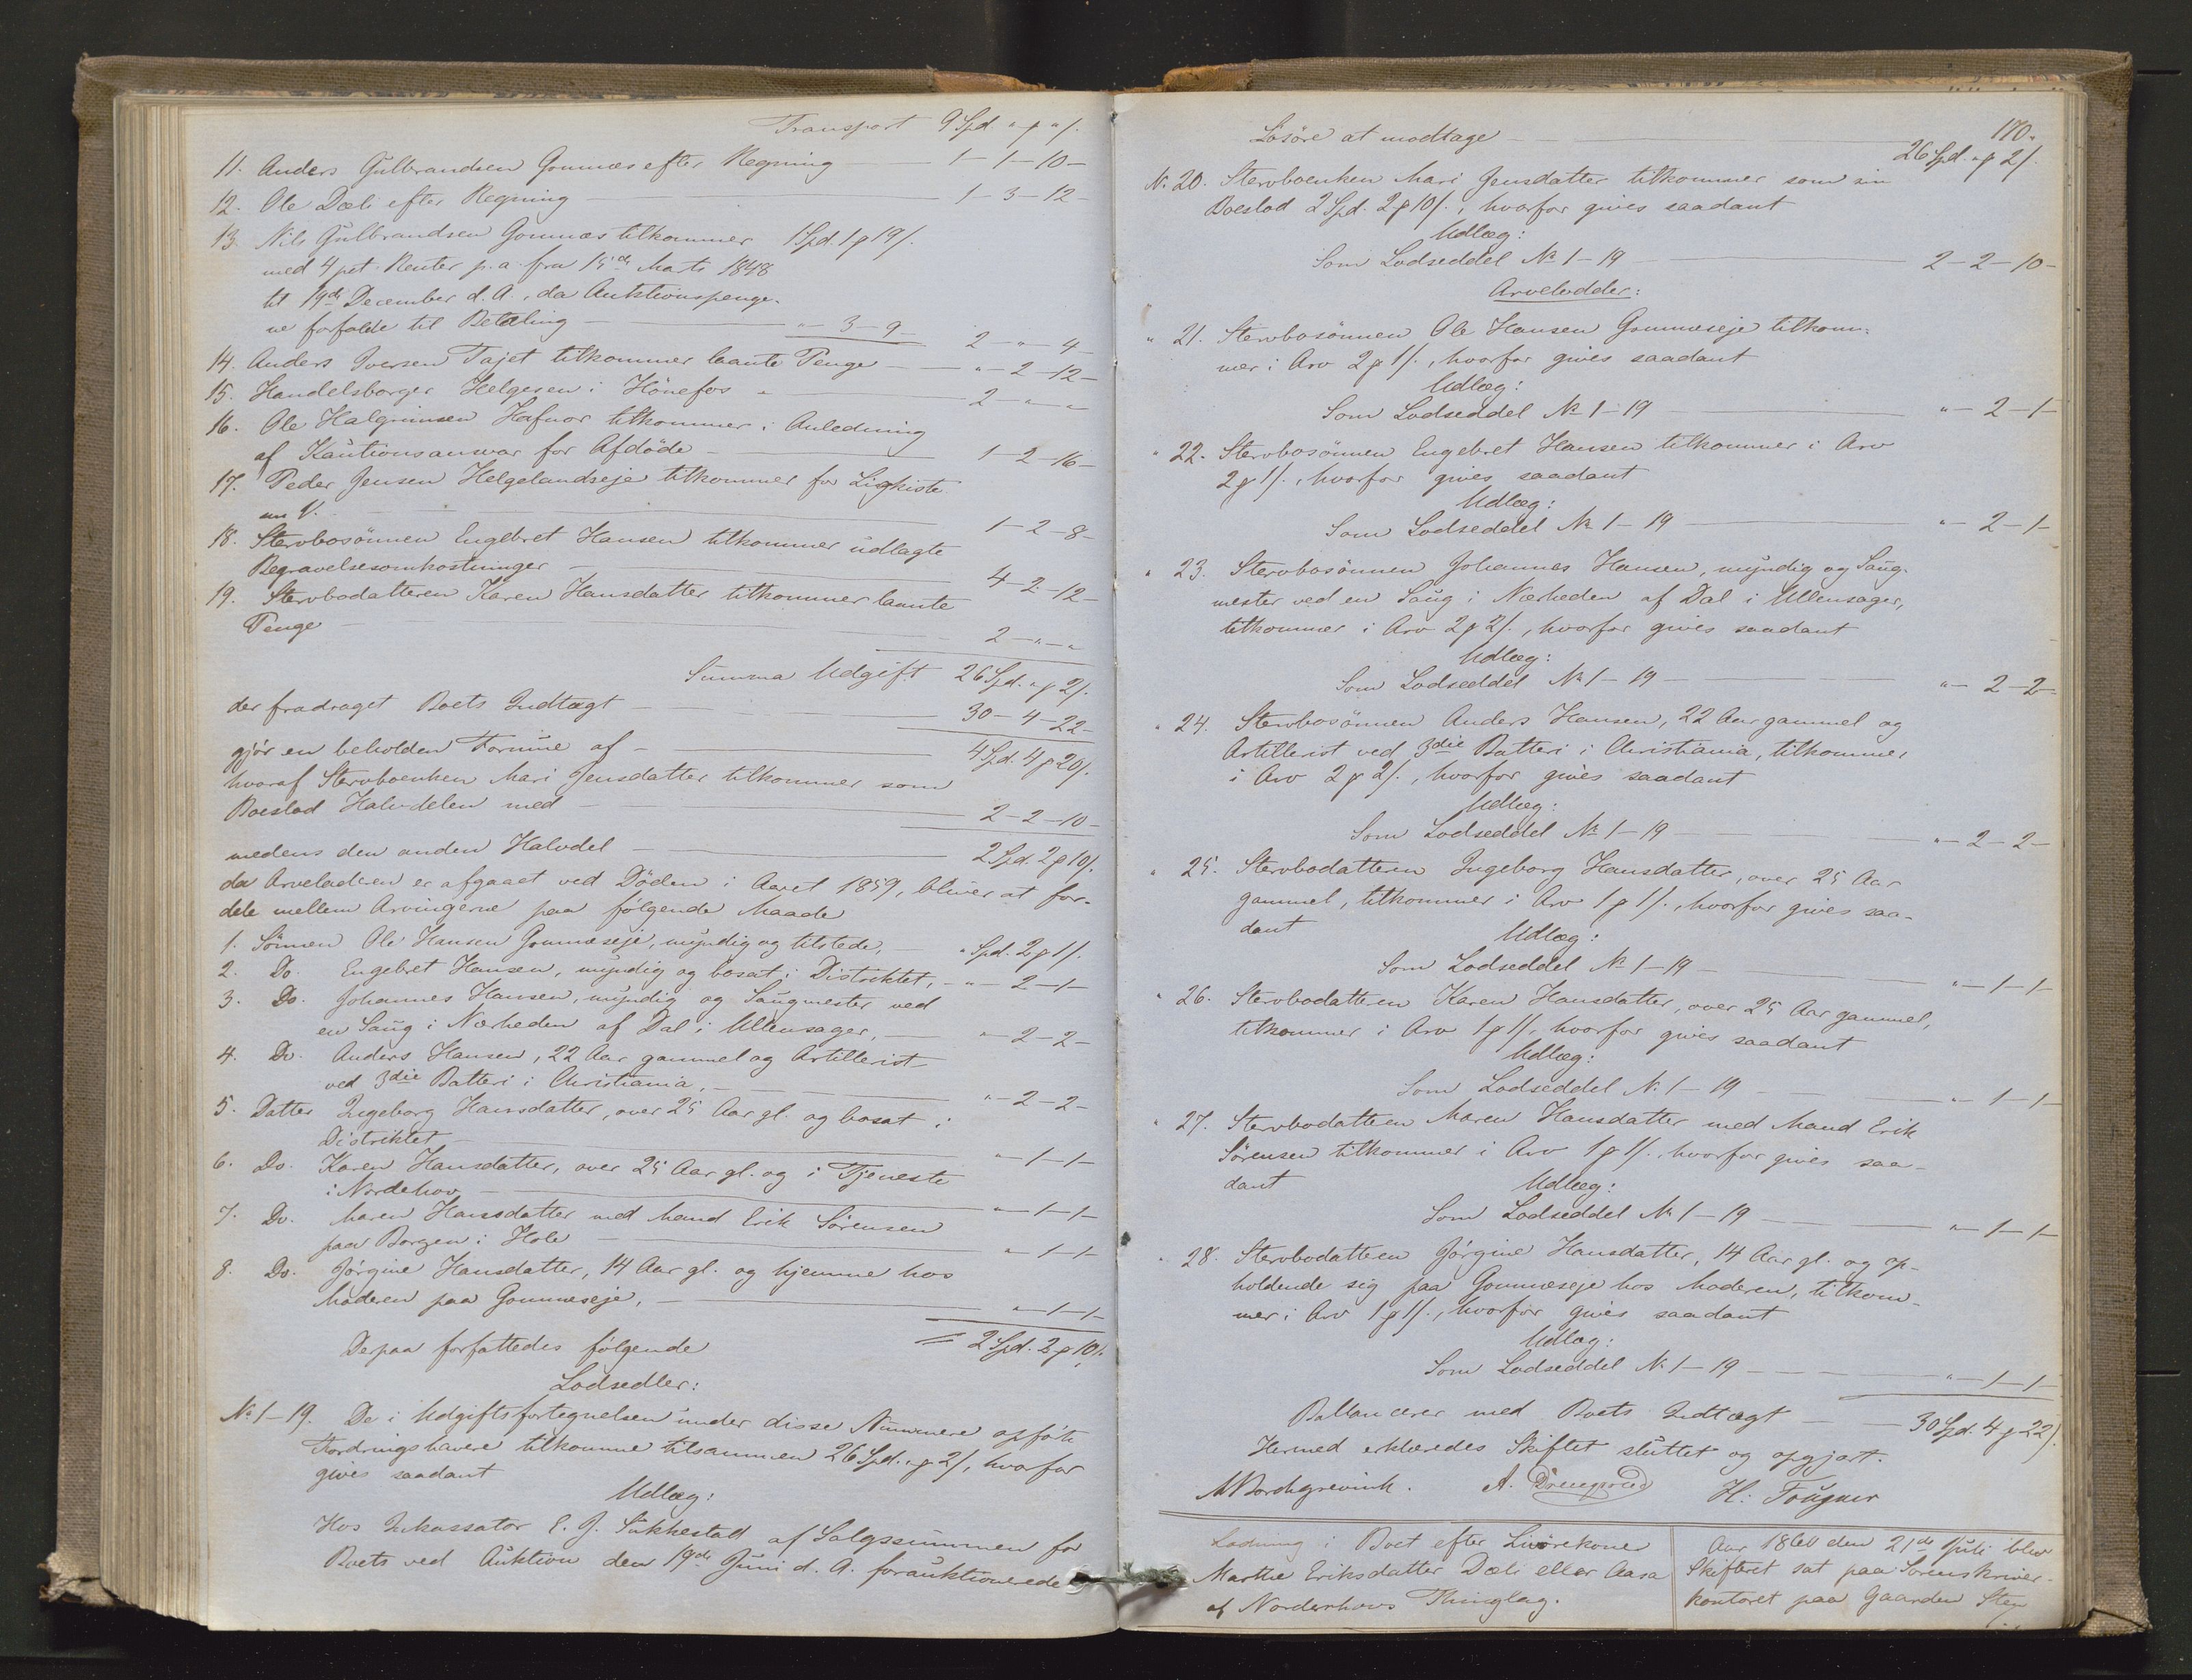 Transport 9 Spd. " # " ſ.
11. Anders Gulbrandsen Gommæs efter Regning — 1-1-10-
12. Ole Dæli efter Regning — 1-3-12-
13. Nils Gulbrandsen Gommæs tilkommer 1 Spd. 1 # 19 ſ.
med 4 pct. Renter p. a. fra 15de Marts 1848
til 19de December d. A., da Auktionspenge-
ne forfalde til Betaling — "-3-9- 2-"-4-
14. Anders Iversen Tajet tilkommer laante Penge — "-2-12-
15. Handelsborger Helgesen i Hönefos " — 2-"-"
16. Ole Halgrimsen Hafnor tilkommer i Anledning
af Kautionsansvar for Afdöde — 1-2-16-
17. Peder Jensen Helgelandseje tilkommer for Ligkiste
m. V. — 1-2-8-
18. Stervbosönnen Engebret Hansen tilkommer udlagte
Begravelsesomkostninger — 4-2-12-
19. Stervbodatteren Karen Hansdatter tilkommer laante
Penge — 2-"-"
Summa Udgift 26 Spd. " # 2 ſ.
der fradraget Boets Indtægt — 30-4-22-
gjör en beholden Formue af — 4 Spd. 4 # 20 ſ.
hvoraf Stervboenken Mari Jensdatter tilkommer som
Boeslod Halvdelen med — 2-2-10-
medens den anden Halvdel — 2 Spd. 2 # 10 ſ.
da Arveladeren er afgaaet ved Döden i Aaret 1859, bliver at for-
dele mellem Arvingerne paa fölgende Maade
1. Sönnen Ole Hansen Gommæseje, myndig og tilstede, — " Spd. 2 # 1 ſ.
2. Do. Engebret Hansen, myndig og bosat i Distriktet, — "-2-1-
3. Do. Johannes Hansen, myndig og Saugmester ved
en Saug i Nærheden af Dal i Ullensager, — "-2-2-
4. Do. Anders Hansen, 22 Aar gammel og Artillerist
ved 3die Batteri i Christiania, — "-2-2-
5. Datter Ingeborg Hansdatter, over 25 Aar gl. og bosat i
Distriktet — "-1-1-
6. Do. Karen Hansdatter, over 25 Aar gl. og i Tjeneste
i Nordehov — "-1-1-
7. Do. Maren Hansdatter med Mand Erik Sörensen
paa Borgen i Hole — "-1-1-
8. Do. Jörgine Hansdatter, 14 Aar gl. og hjemme hos
Moderen paa Gommæseje, — "-1-1-
= 2 Spd. 2 # 10 ſ.
Derpaa forfattedes fölgende
Lodsedler:
No. 1-19. De i Udgiftsfortegnelsen under disse Nummere opförte
Fordringshavere tilkomme tilsammen 26 Spd. " # 2 ſ., hvorfor
gives saadant
Udlæg:
Hos Inkassator E. J. Sukkestad af Salgssummen for
Boets ved Auktion den 19de Juni d. A. forauktionerede
170.
Lösöre at modtage — 26 Spd. " # 2 ſ.
No. 20. Stervboenken Mari Jensdatter tilkommer som sin
Boeslod 2 Spd. 2 # 10 ſ., hvorfor gives saadant
Udlæg:
Som Lodseddel No 1-19 — 2-2-10-
Arvelodder:
" 21. Stervbosönnen Ole Hansen Gommæseje tilkom-
mer i Arv 2 # 1 ſ., hvorfor gives saadant
Udlæg:
Som Lodseddel No 1-19 — "-2-1-
" 22. Stervbosönnen Engebret Hansen tilkommer i Arv
2 # 1 ſ., hvorfor gives saadant
Udlæg:
Som Lodseddel No 1-19 — "-2-1-
" 23. Stervbosönnen Johannes Hansen, myndig og Saug-
mester ved en Saug i Nærheden af Dal i Ullensager,
tilkommer i Arv 2 # 2 ſ., hvorfor gives saadant
Udlæg:
Som Lodseddel No 1-19 — "-2-2-
" 24. Stervbosönnen Anders Hansen, 22 Aar gammel og
Artillerist ved 3die Batteri i Christiania, tilkommer
i Arv 2 # 2 ſ., hvorfor gives saadant
Udlæg:
Som Lodseddel No 1-19 — "-2-2-
" 25. Stervbodatteren Ingeborg Hansdatter, over 25 Aar
gammel, tilkommer i Arv 1 # 1 ſ., hvorfor gives saa-
dant
Udlæg:
Som Lodseddel No 1-19 — "-1-1-
" 26. Stervbodatteren Karen Hansdatter, over 25 Aar gammel,
tilkommer i Arv 1 # 1 ſ., hvorfor gives saadant
Udlæg:
Som Lodseddel No 1-19 — "-1-1-
" 27. Stervbodatteren Maren Hansdatter med Mand Erik
Sörensen tilkommer i Arv 1 # 1 ſ., hvorfor gives saa-
dant
Udlæg:
Som Lodseddel No 1-19 — "-1-1-
" 28. Stervbodatteren Jörgine Hansdatter, 14 Aar gl. og op-
holdende sig paa Gommæseje hos Moderen, tilkom-
mer i Arv 1 # 1 ſ., hvorfor gives saadant
Udlæg:
Som Lodseddel No 1-19 — "-1-1-
Ballancerer med Boets Indtægt — 30 Spd. 4 # 22 ſ.
Hermed erklæredes Skiftet sluttet og opgjort.
M Borchgrevink. A. H. Tougner
Lodning i Boet efter Livörekone
Marthe Eriksdatter Dæli eller Aasa
af Norderhovs Thinglag.
Aar 1860 den 21de Juli blev
Skifteret sat paa Sorenskriver-
kontoret paa Gaarden Steen